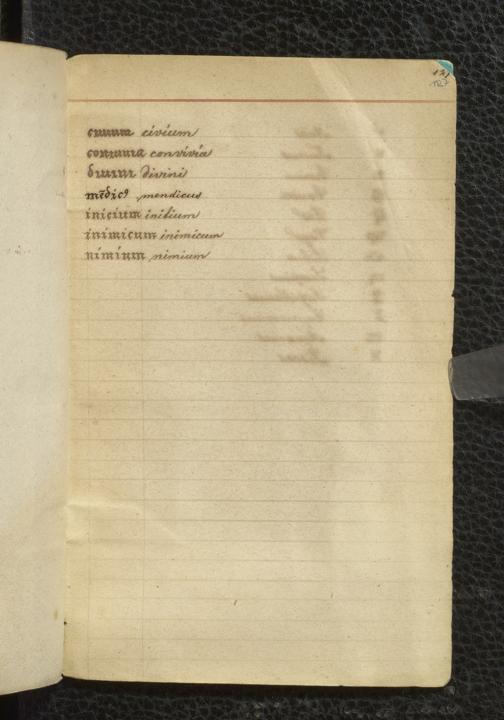 127
ciuium civium
conuiuia convivia
diuini divini
mēdicꝰ mendicus
inicium initium
inimicum inimicum
nimium nimium